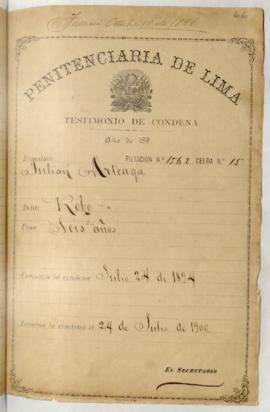 PENITENCIARIA DE LIMA
TESTIMONIO DE CONDENA
Año de 189
FILIACION N.º 1562 CELDA N.º 15
Julian Arteaga
Delito Robo
Pena Seis años
Comenzó la condena Julio 24 de 1894
Termina la condena el 24 de Julio de 1900
EL SECRETARIO